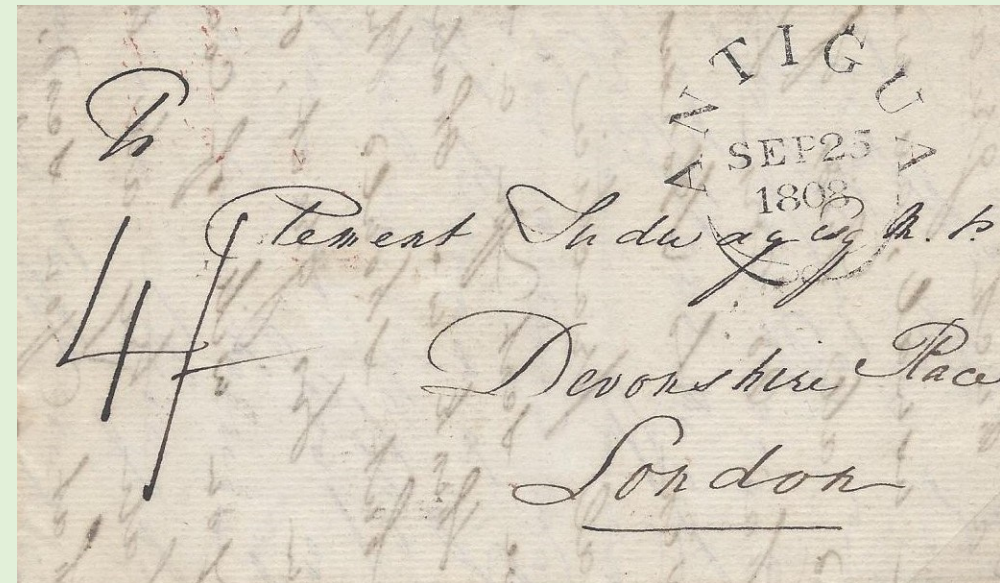 ANTIGUA
SEP 25
1808
To
Clement Tudway Esq M.P.
4/
Devonshire Place
London